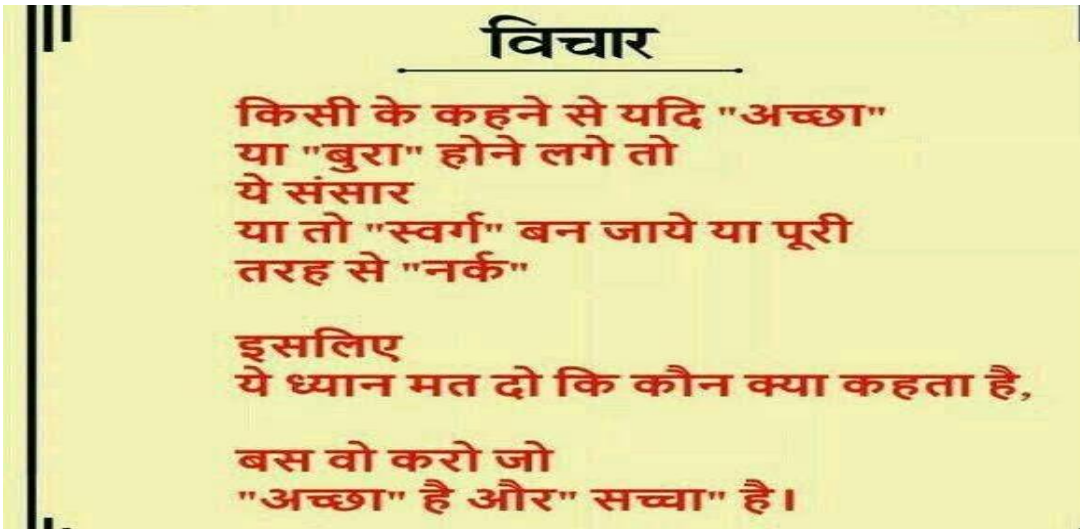 विचार
किसी के कहने से यदि "अच्छा"
या "बुरा" होने लगे तो
ये संसार
या तो "स्वर्ग" बन जाये या पूरी
तरह से "नर्क"
इसलिए
ये ध्यान मत दो कि कौन क्या कहता है,
बस वो करो जो
"अच्छा" है और" सच्चा" है।